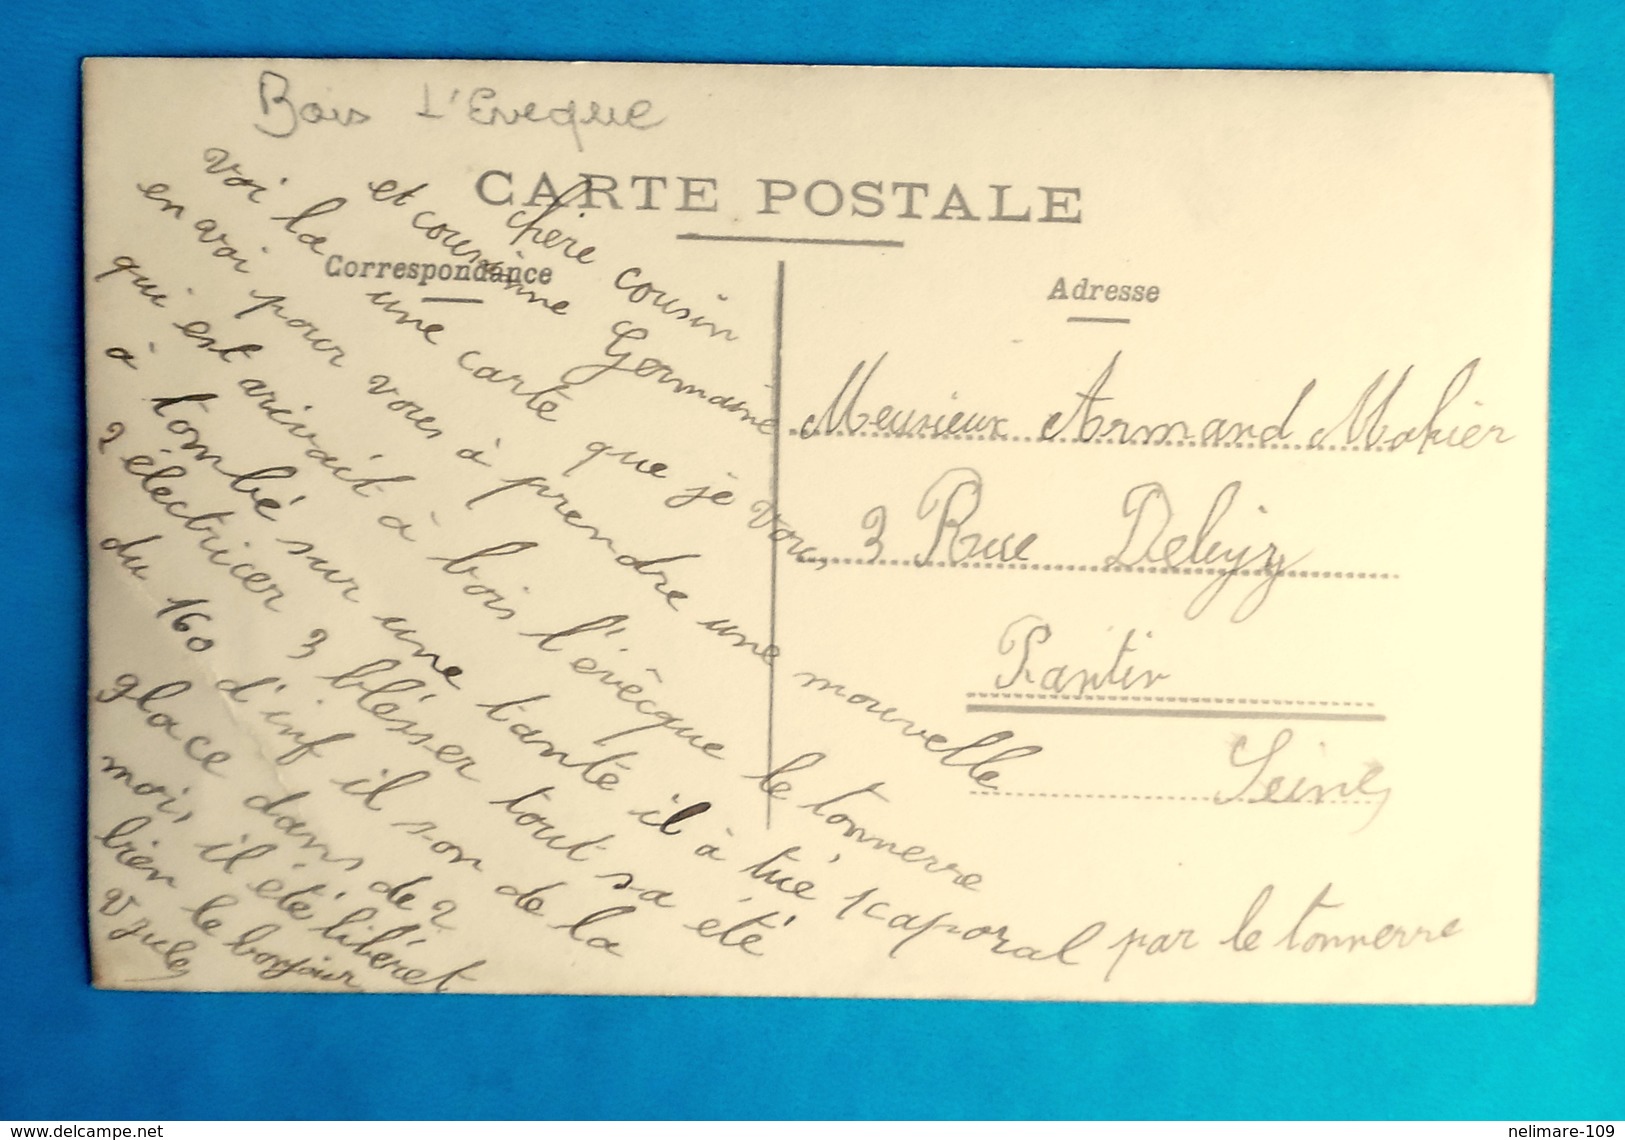 Bois L'Eveque
CARTE POSTALE
Correspondance
Adresse
chère cousin
et cousinne Germaine
voi la une carte que je vous
en avoi pour vous à prendre une nouvelle
qui est arivait à bois l'évêque le tonnerre
à tombé sur une tante il à tué 1 caporal par le tonnerre
2 électricer 3 blésser tout sa été
du 160 d'inf il son de la
glace dans de 2
moi, il été libéret
bien le bonjour
Jules
Messieux Armand Mahier
3 Rue
Pantin
Seine
delcampe.net
nelimare-109